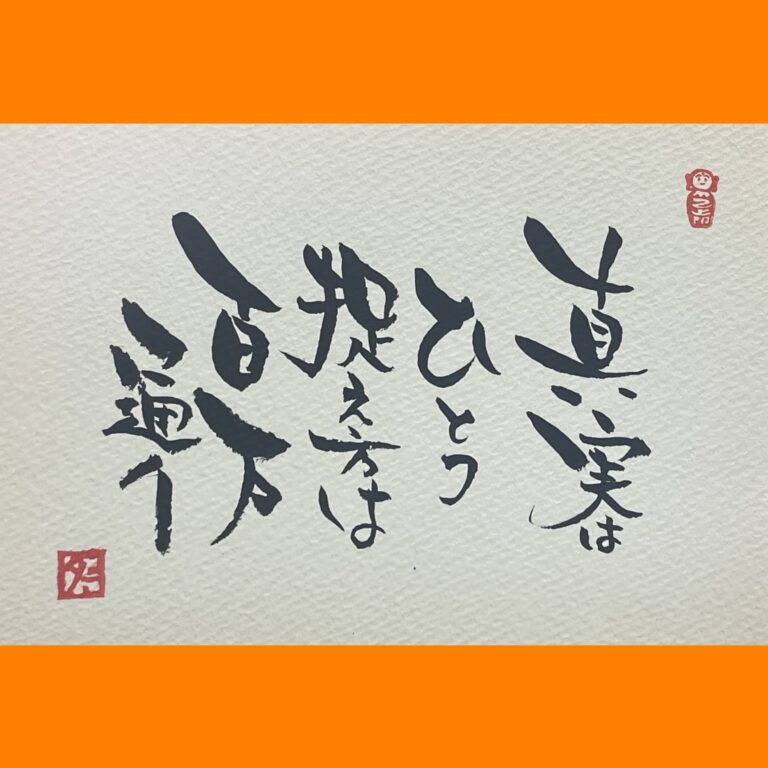 真実は
ひとつ
捉え方は
百万
通り